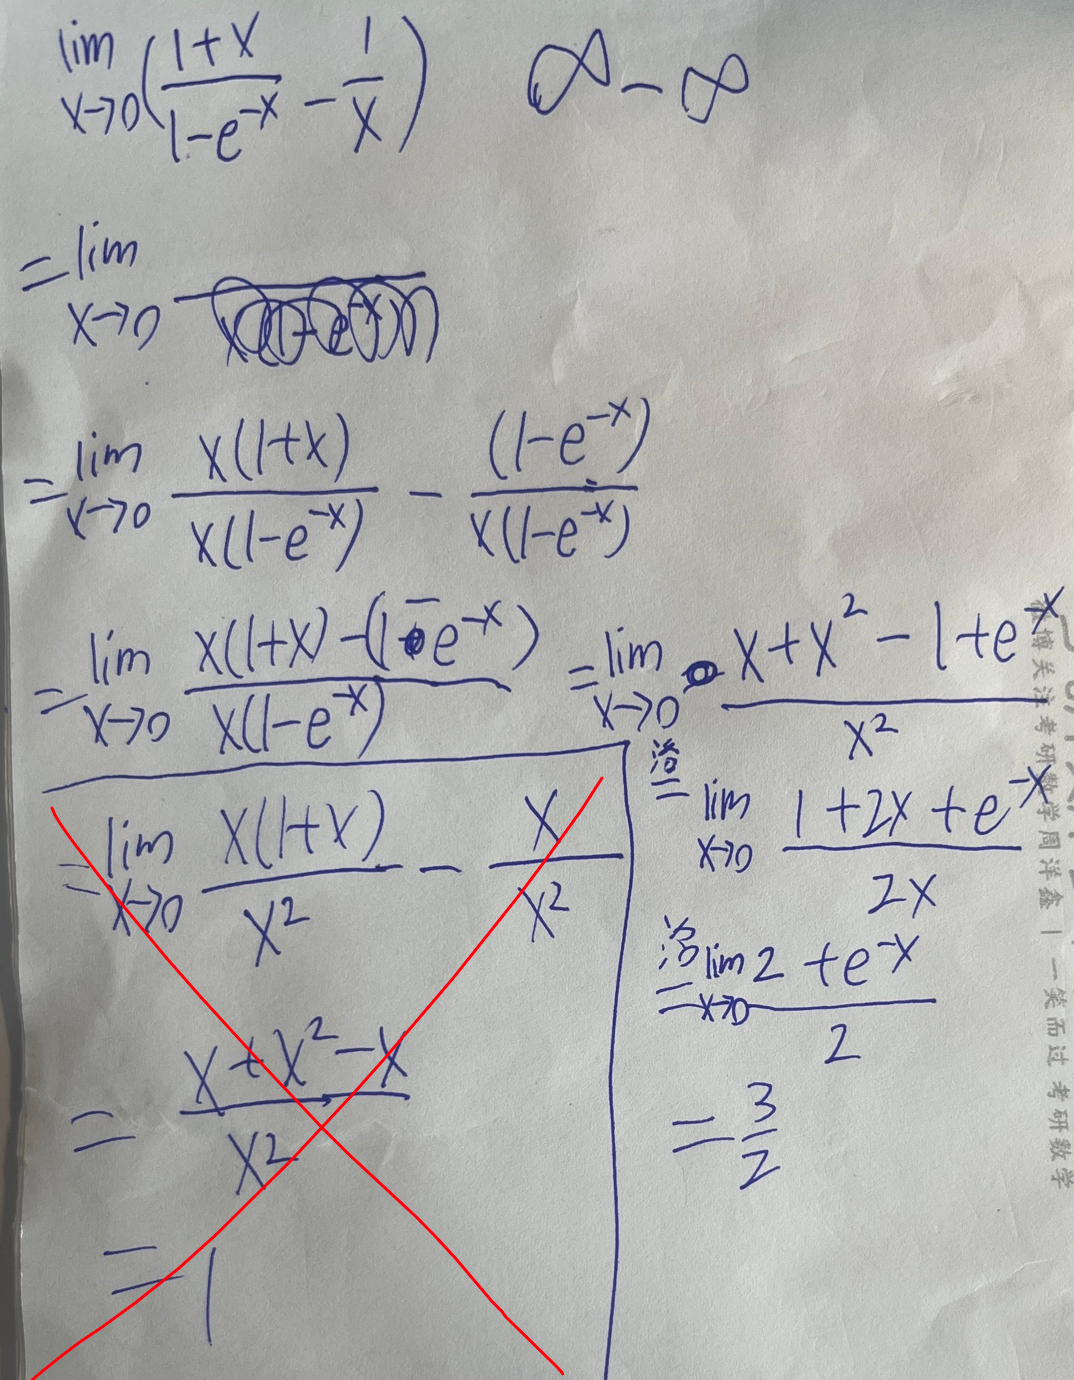 lim x→0 ( (1+x)/(1-e^{-x}) - 1/x )   ∞-∞
= lim x→0
= lim x→0 x(1+x)/(x(1-e^{-x})) - (1-e^{-x})/(x(1-e^{-x}))
= lim x→0 (x(1+x)-(1-e^{-x}))/(x(1-e^{-x})) = lim x→0 (x+x²-1+e^{-x})/x²
= lim x→0 x(1+x)/x² - x/x²
= (x+x²-x)/x²
= 1
洛= lim x→0 (1+2x+e^{-x})/(2x)
洛= lim x→0 (2+e^{-x})/2
= 3/2
博关注考研数学周洋鑫 | 一笑而过 考研数学